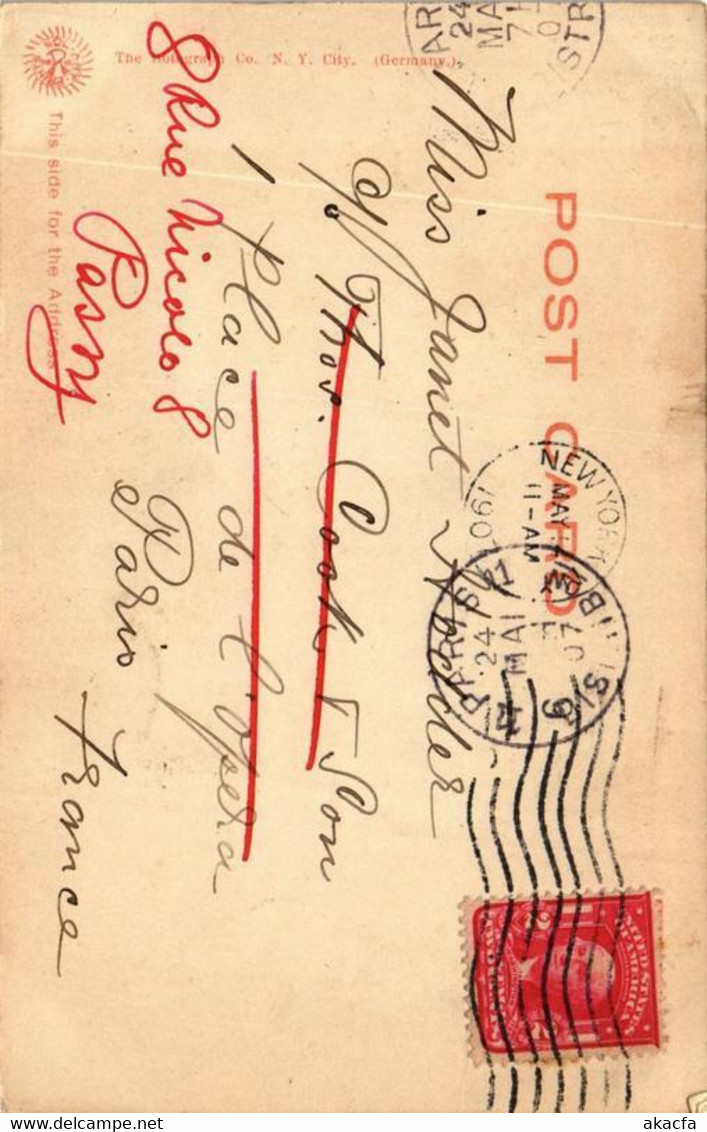 The Rotograph Co. N. Y. City. (Germany.)
This side for the Address
POST CARD
NEW YORK
MAY
11-AM
1907
PARIS
24
MAI
07
DISTRIB
Miss Janet
c/o Thos. Cook & Son
1 Place de l'opera
Paris
France
8 Rue Nicolo 8
Passy
UNITED STATES
OF AMERICA
2
2
delcampe.net
akacfa